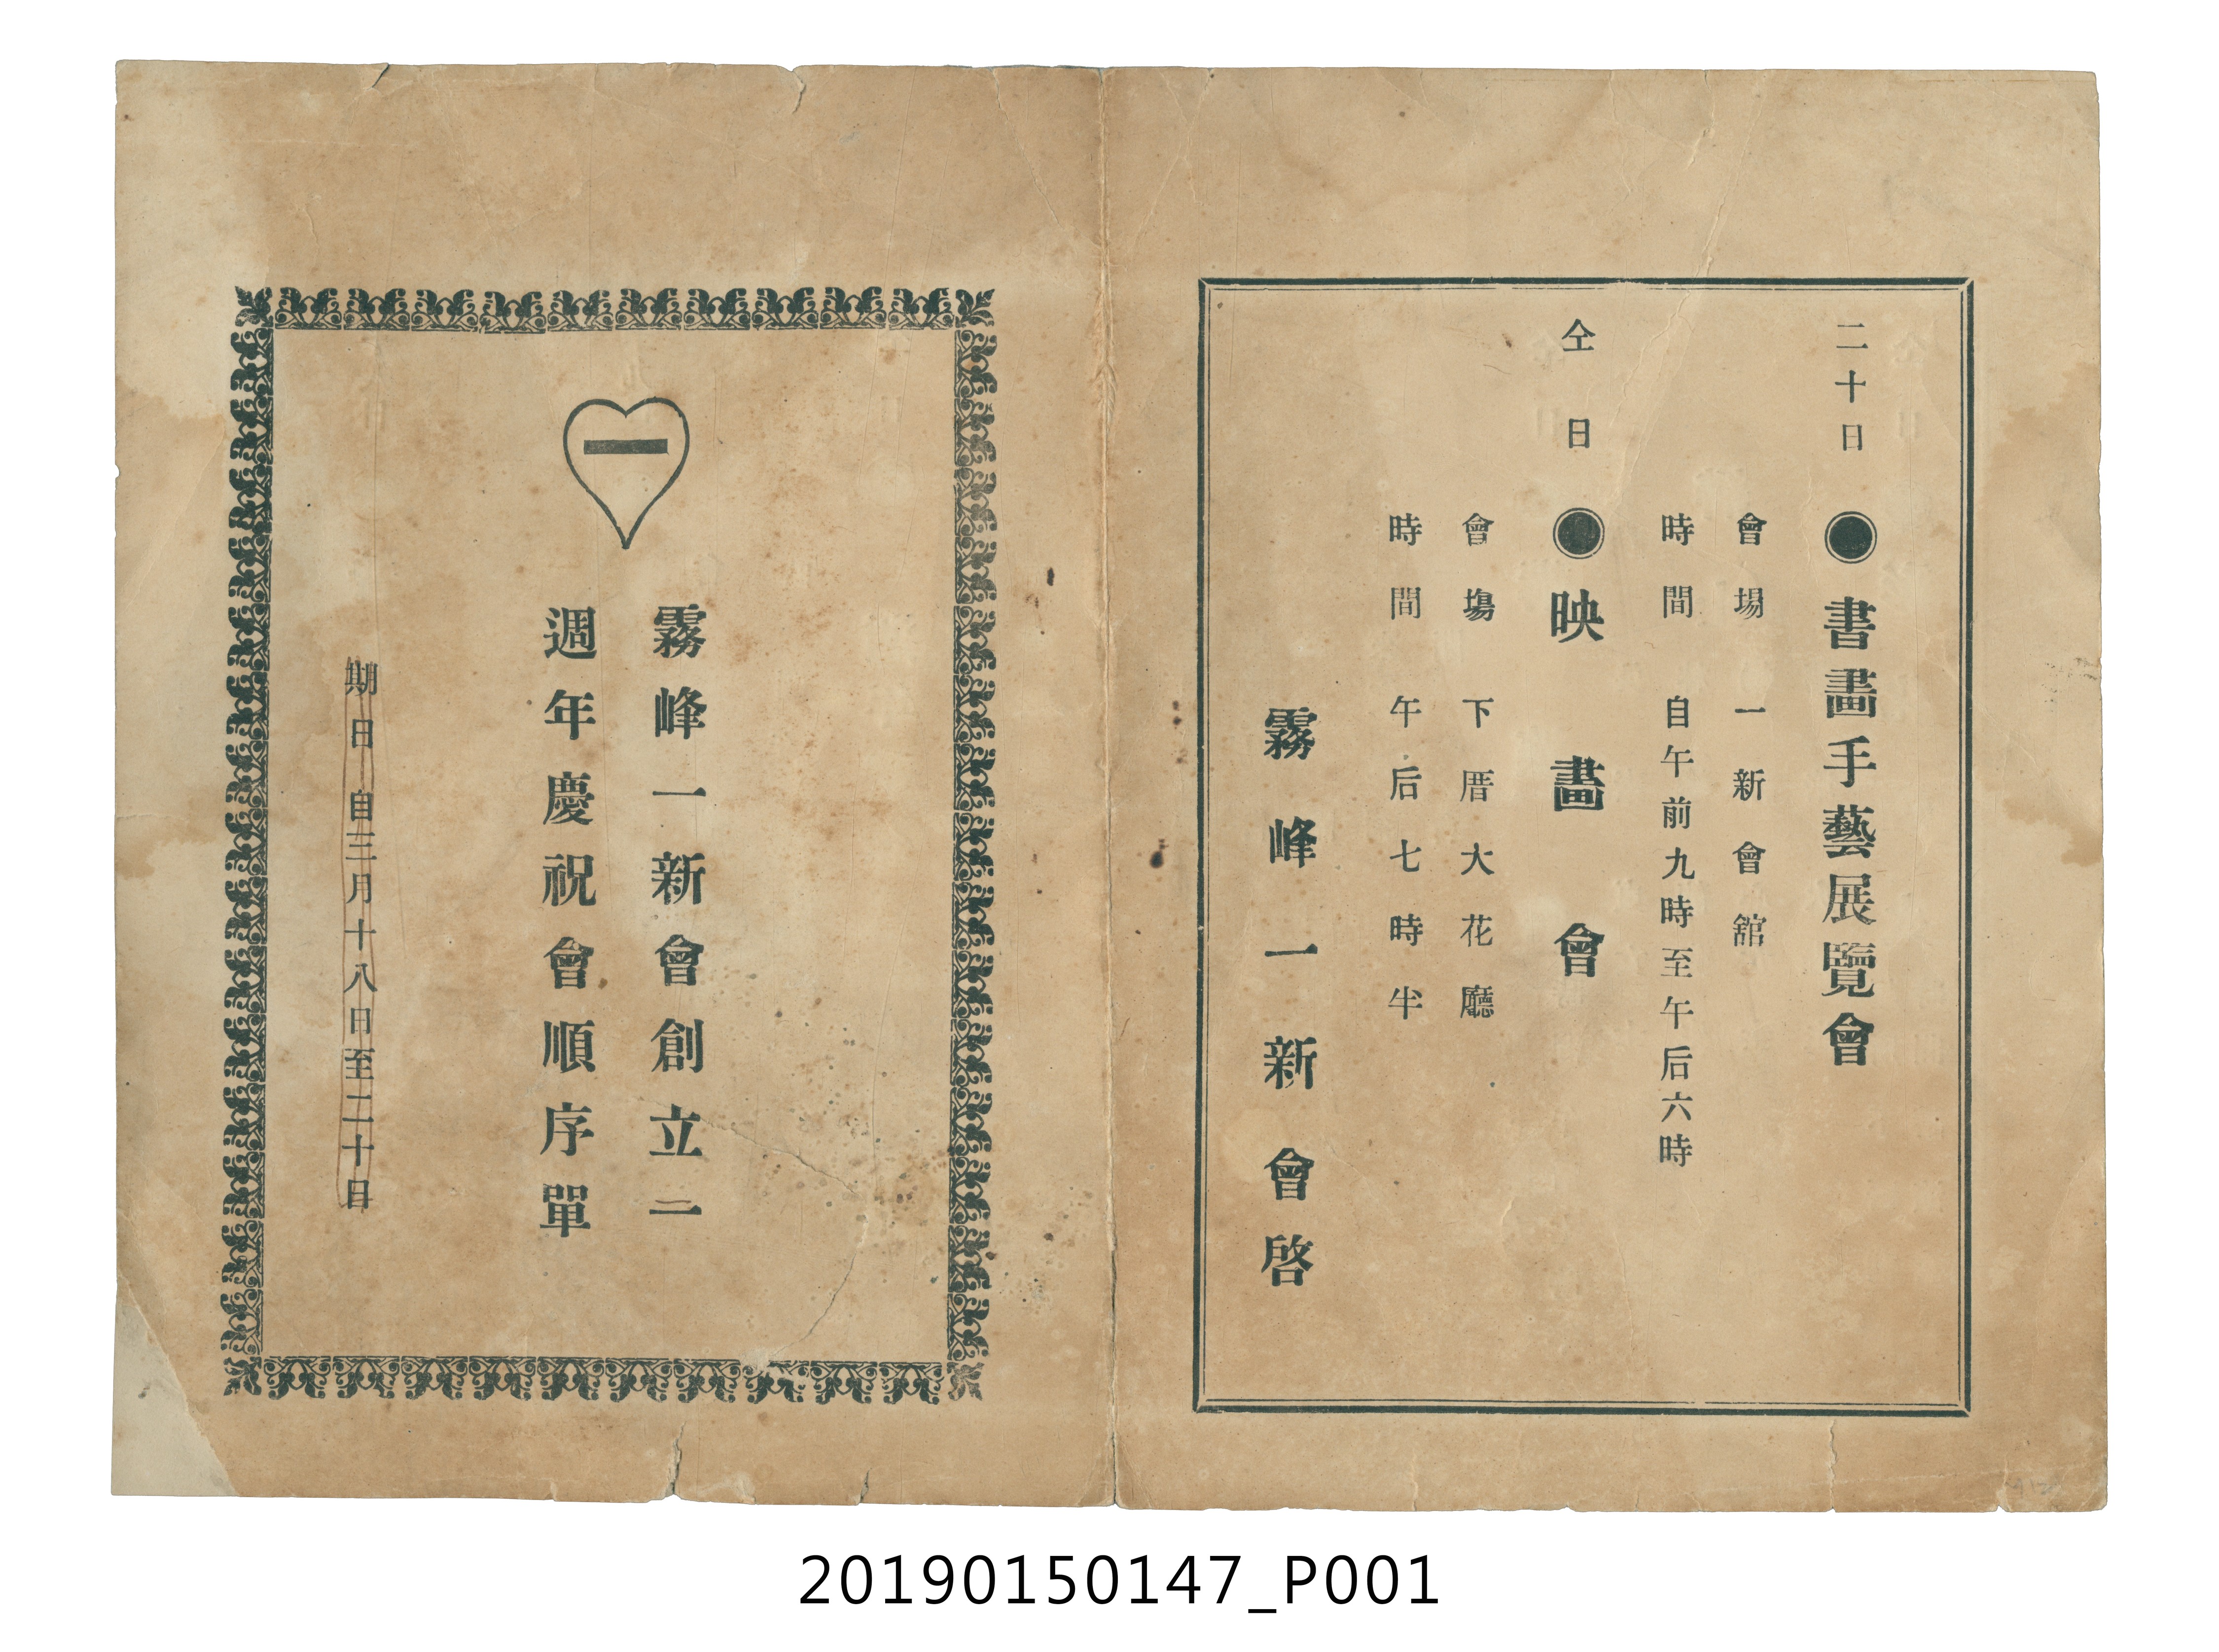 二十日 ◉書畫手藝展覽會
會場 一新會舘
時間 自午前九時至午后六時
仝日 ◉映畫會
會塲 下厝大花廳
時間 午后七時半
霧峰一新會啓
一
霧峰一新會創立二
週年慶祝會順序單
期日自三月十八日至二十日
20190150147_P001